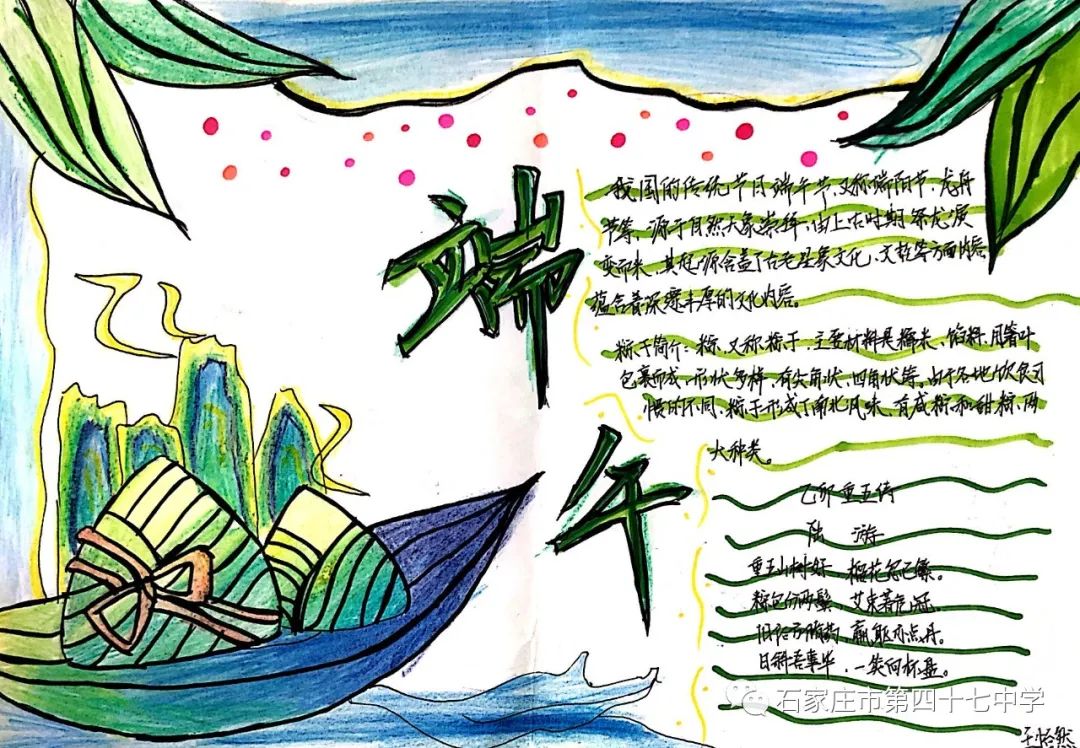 端午
我国的传统节日端午节,又称端阳节、龙舟
节等,源于自然天象崇拜,由上古时期祭龙演
变而来,其起源含盖了古老星象文化、文哲等方面内容
蕴含着深邃丰厚的文化内容。
粽子简介:粽,又称粽子,主要材料是糯米、馅料,用箬叶
包裹而成,形状多样,有尖角状、四角状等。由于各地饮食习
惯的不同,粽子形成了南北风味,有咸粽和甜粽两
大种类。
乙卯重五诗
陆 游
重五山村好,榴花忽已繁。
粽包分两髻,艾束著危冠。
旧俗方储药,羸躯亦点丹。
日斜吾事毕,一笑向杯盘。
石家庄市第四十七中学